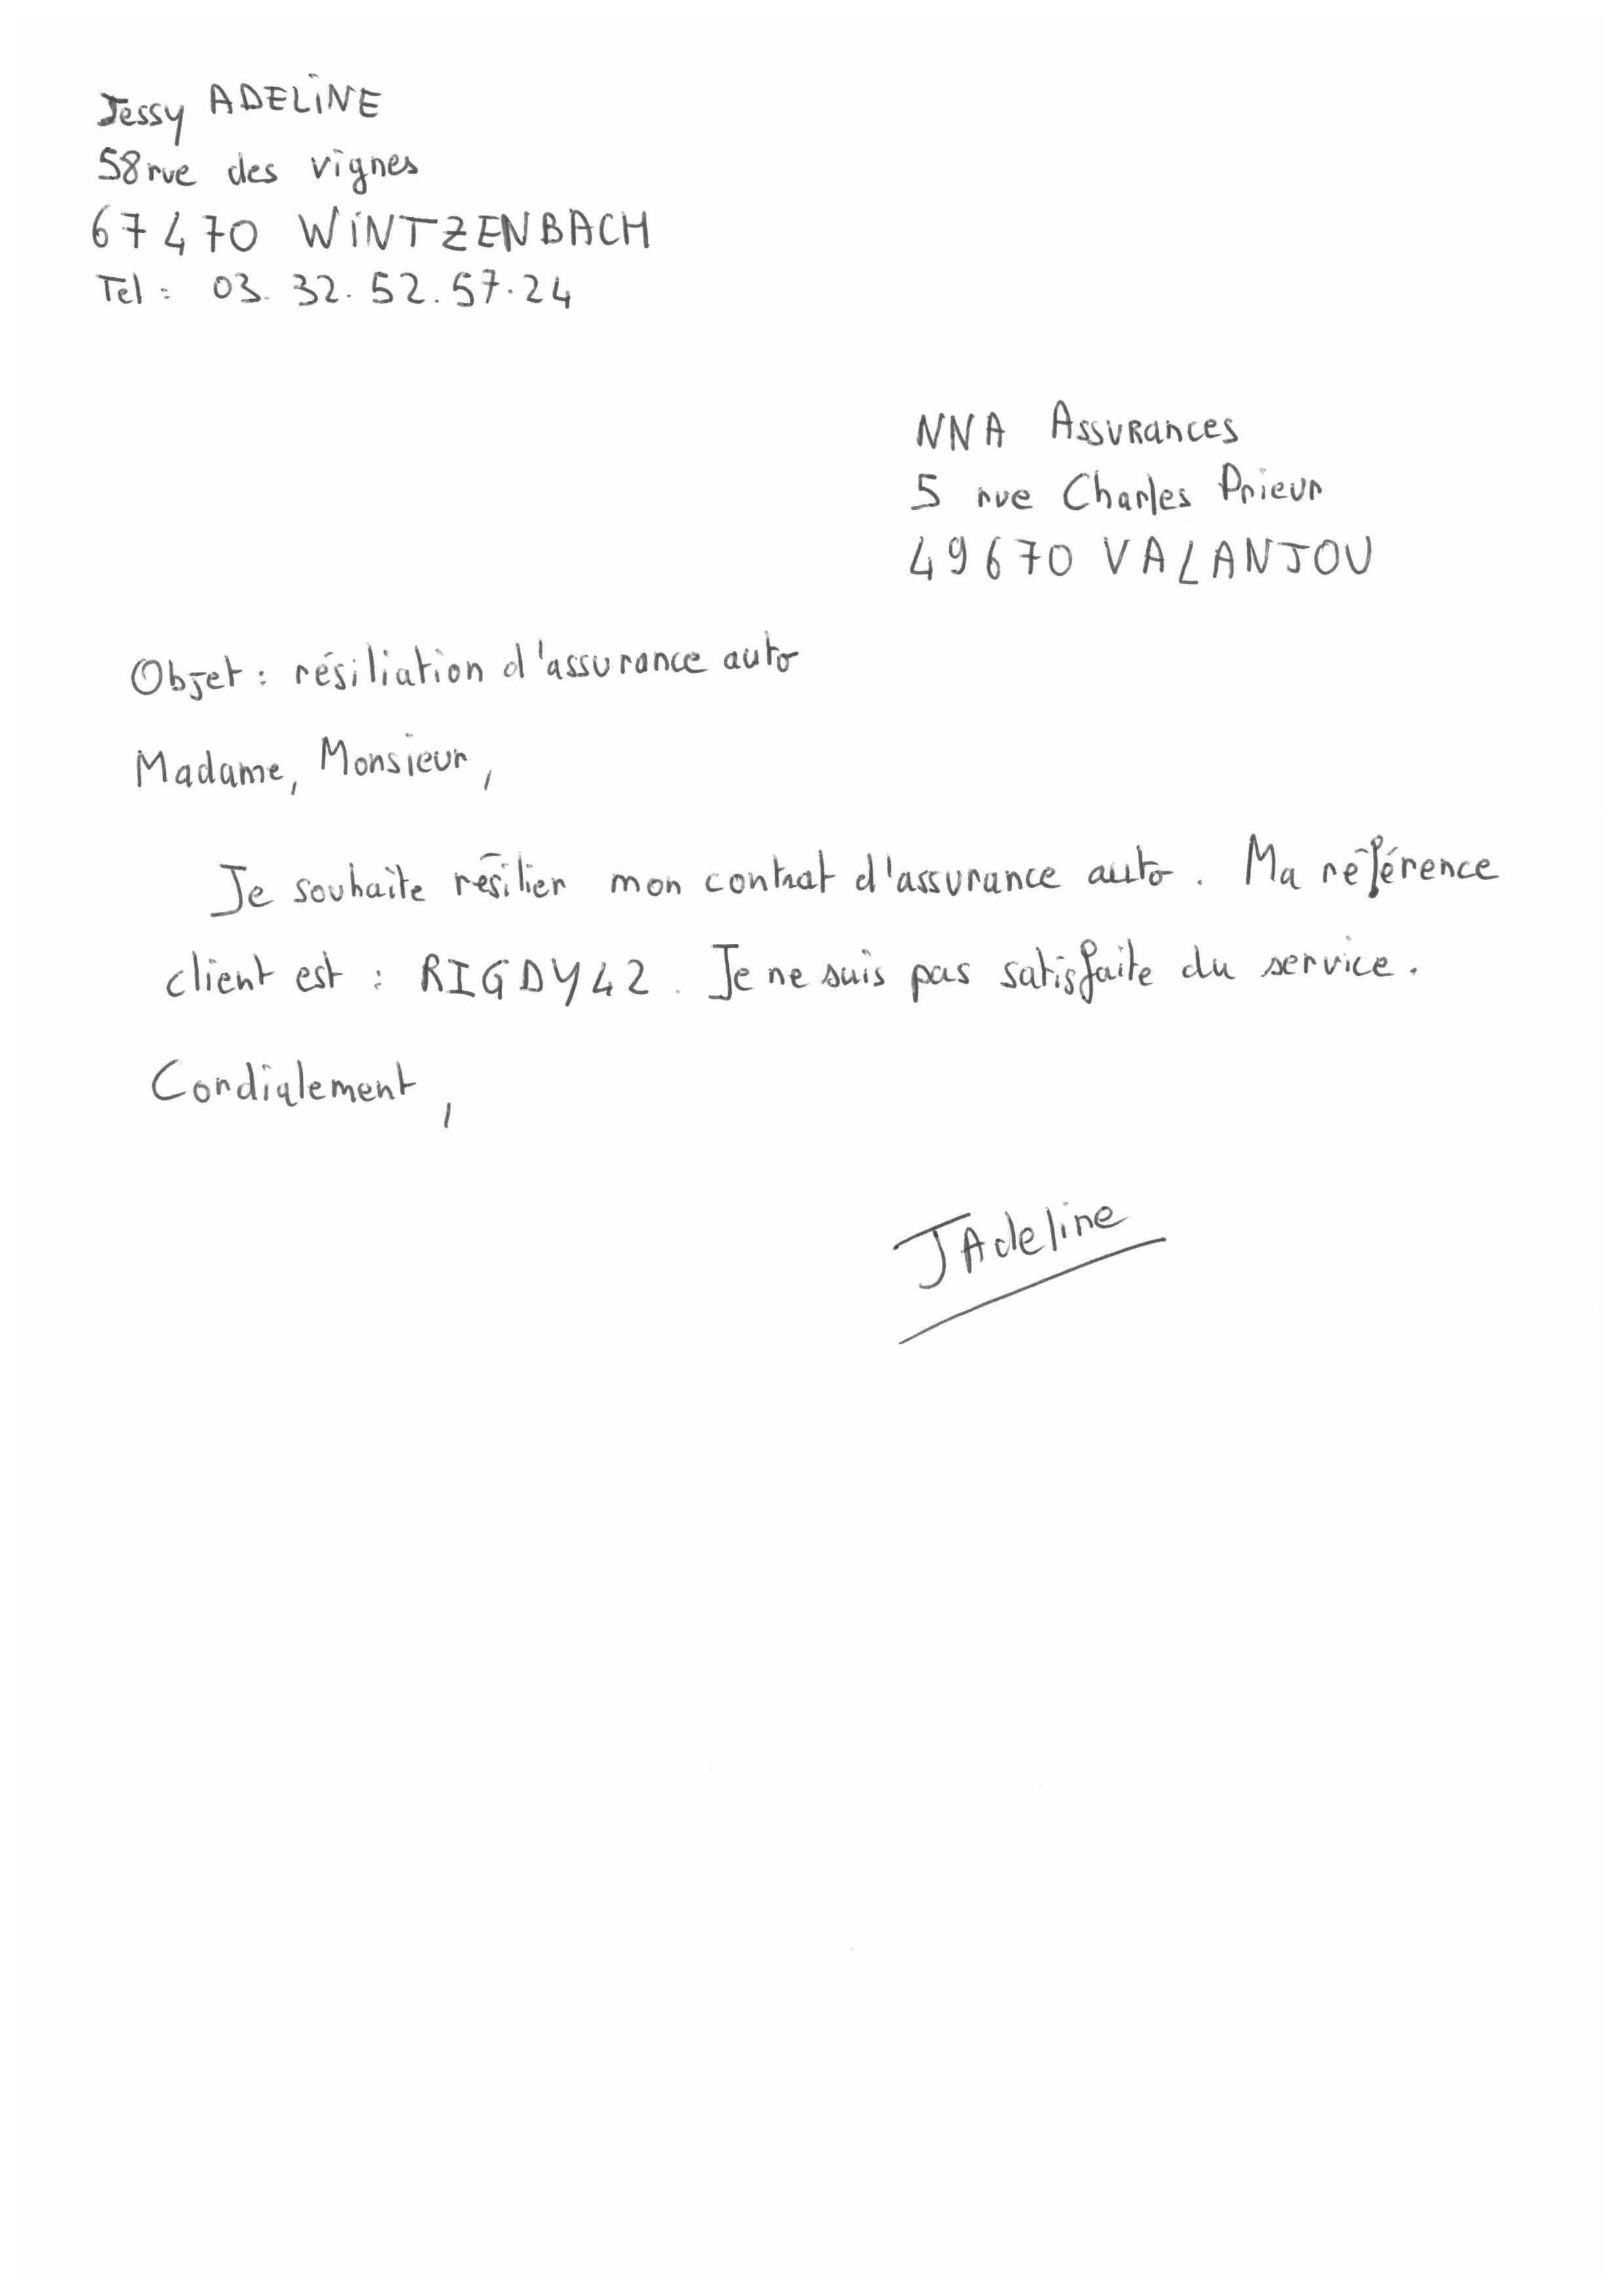 Jessy ADELINE
58 rue des vignes
67470 WINTZENBACH
Tel : 03.32.52.57.24
NNA Assurances
5 rue Charles Prieur
49670 VALANJOU
Objet : résiliation d'assurance auto
Madame, Monsieur,
Je souhaite résilier mon contrat d'assurance auto. Ma référence
client est : RIGDY42. Je ne suis pas satisfaite du service.
Cordialement,
JAdeline